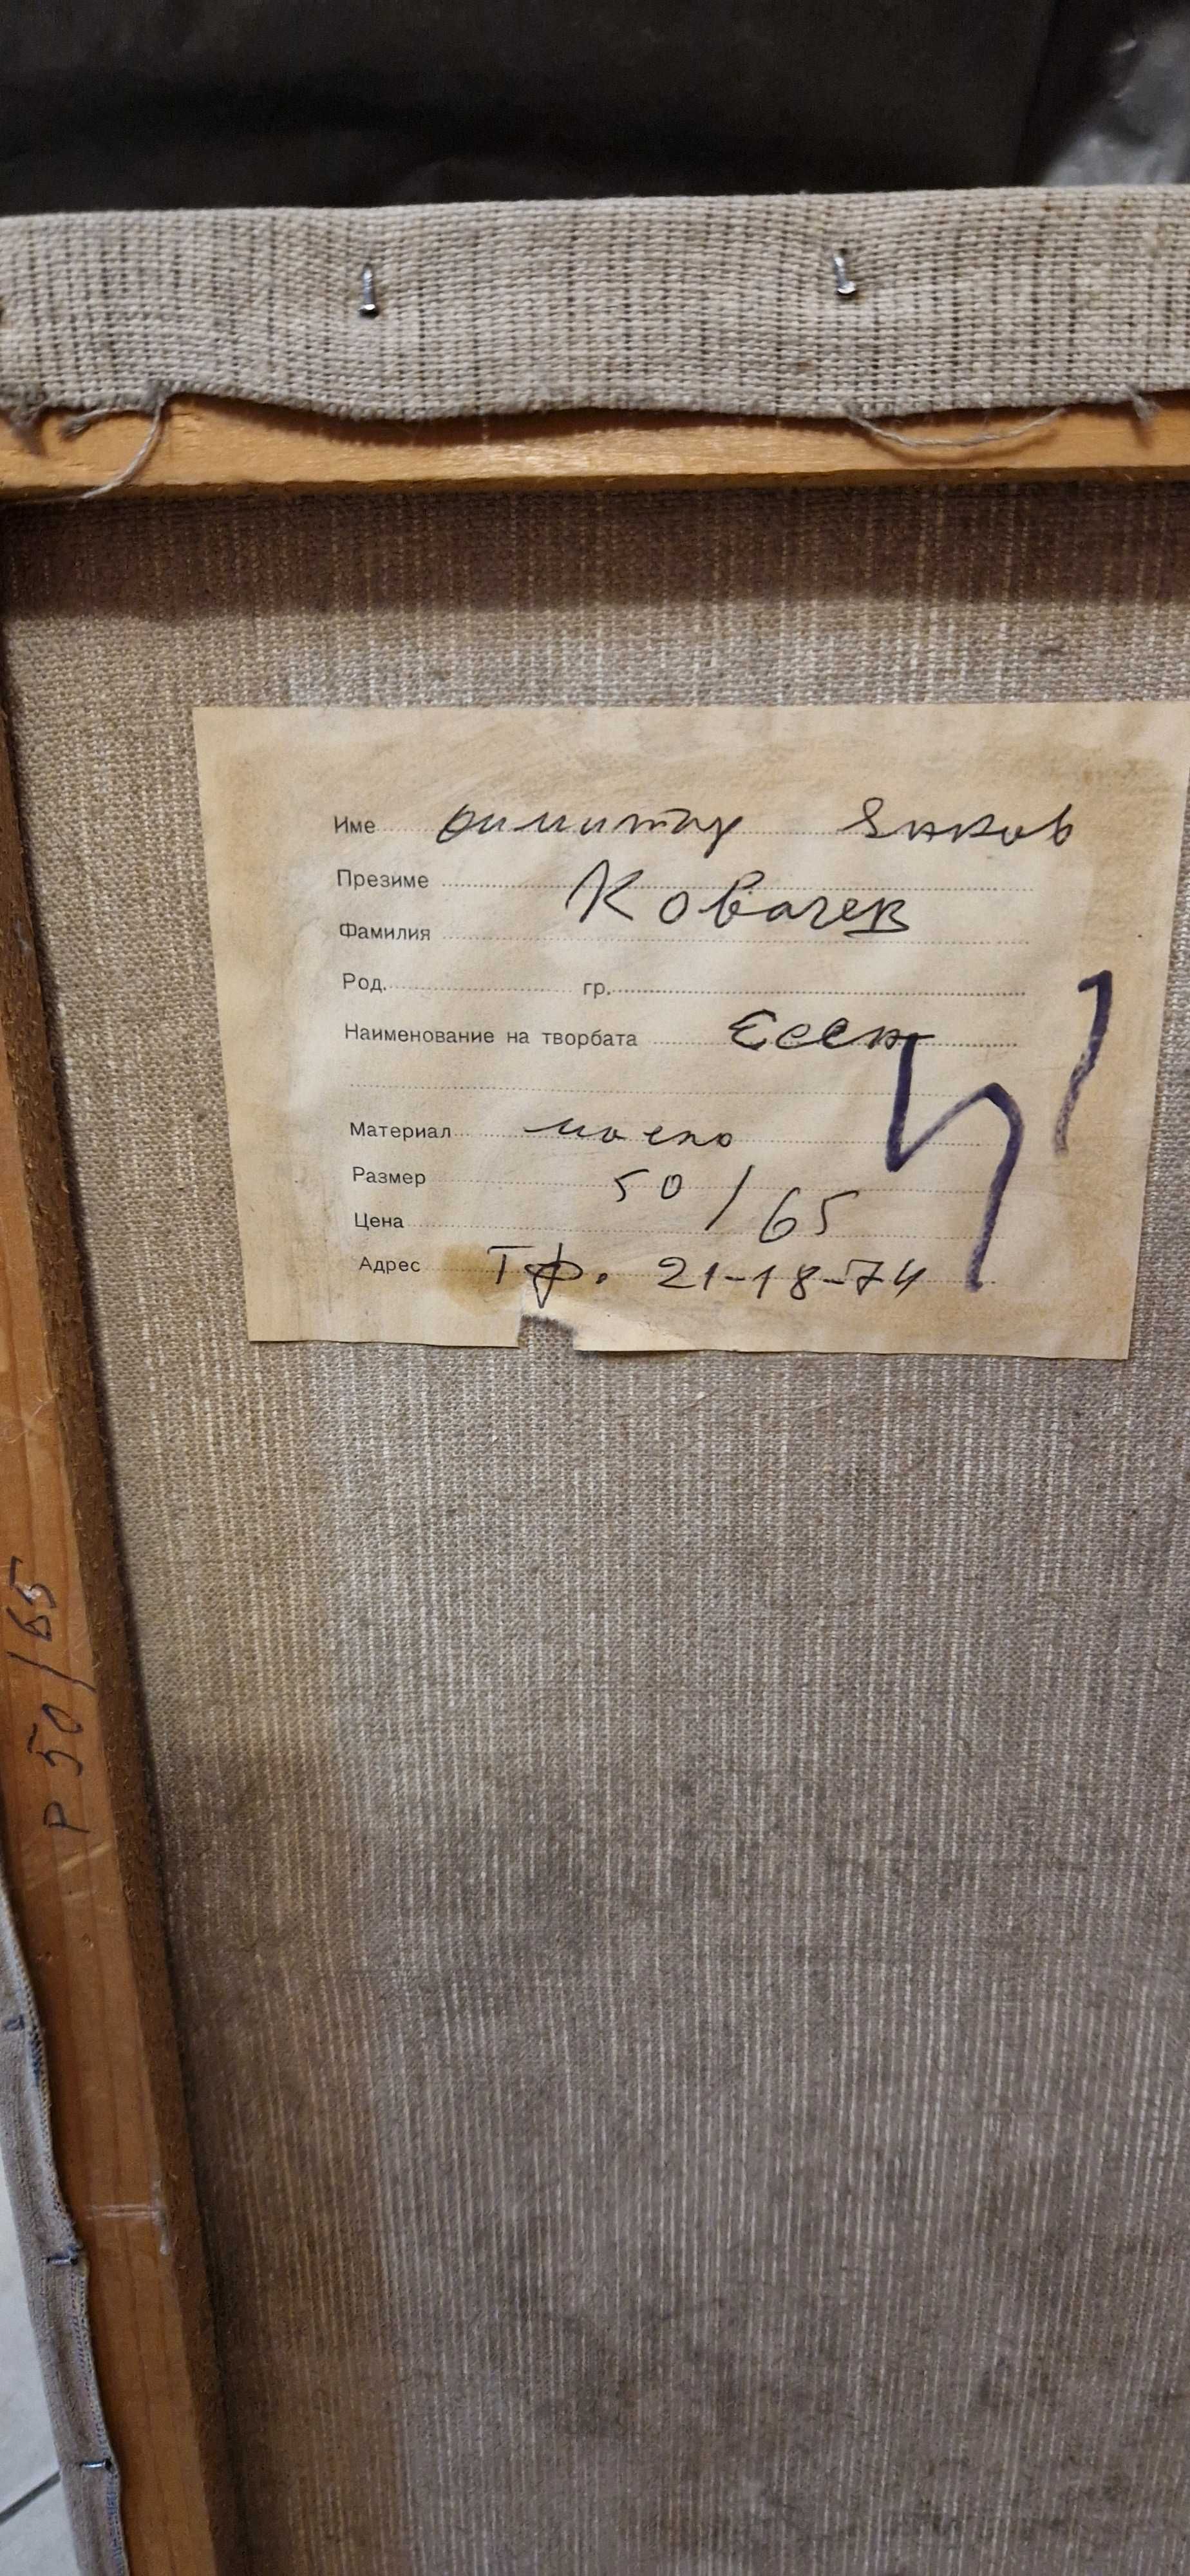 Име Димитър Янков
Презиме
Ковачев
Фамилия
Род. гр.
Наименование на творбата Есен
Материал масло
Размер 50/65
Цена
Адрес Тф. 21-18-74
P 50/65